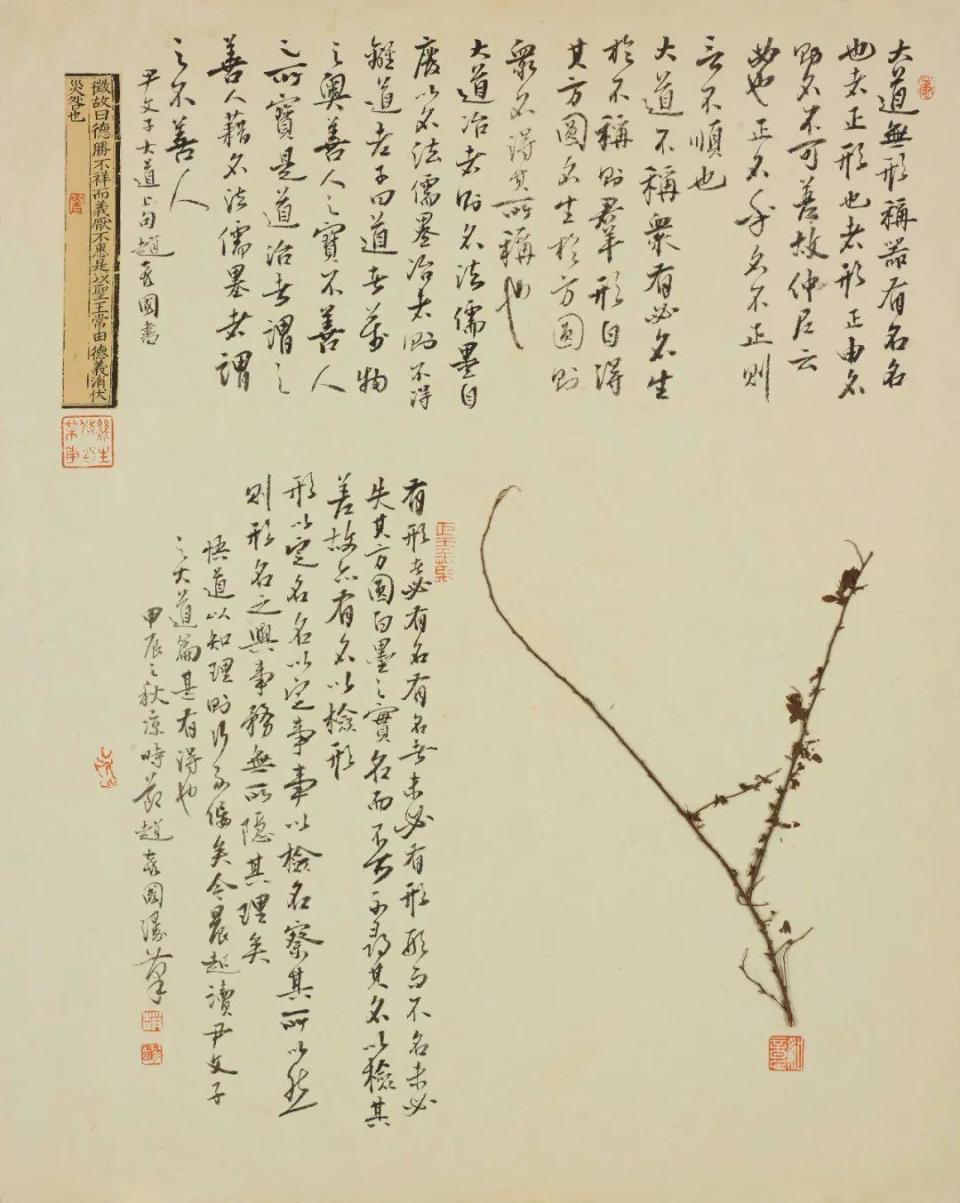 大道無形稱器有名名
也者正形也者形正由名
則名不可差故仲尼云
必也正名乎名不正則
言不順也
大道不稱眾有必名生
於不稱則羣形自得
其方圓名生於方圓則
眾名得其所稱也
大道治者則名法儒墨自
廢以名法儒墨治者則不得
離道老子曰道者萬物
之奧善人之寶不善人
之所寶是道治者謂之
善人藉名法儒墨者謂
之不善人
尹文子大道上句趙國書
徵故曰德勝不祥而義厭不惠是以聖王常由德義消伏
災咎也
有形者必有名有名者未必有形形而不名未必
失其方圓白黑之實名而不可不尋其名以檢其
差故亦有名以檢形
形以定名名以定事事以檢名察其所以然
則形名之與事務無所隱其理矣
悟道以知理則行不偏矣今晨起讀尹文子
之大道篇甚有得也
甲辰之秋涼時節趙國漫筆